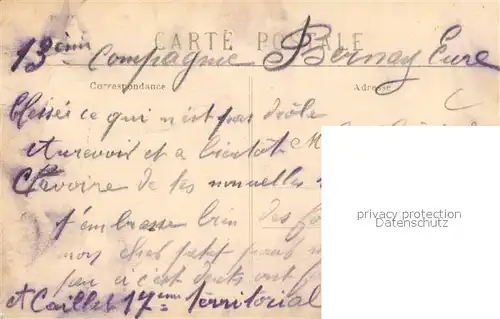 CARTE POSTALE
13ème Compagnie Bernay Eure
Correspondance
Adresse
blessée ce qui n'est pas drôle
Aurevoir et a bientot M
de tes nouvelles
t'embrasse bien des
mon cher petit
par ici c'est
et Caillet 17ème Territorial
privacy protection
Datenschutz